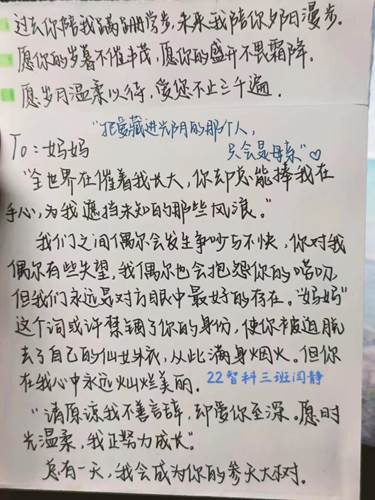 过去你陪我蹒跚学步，未来我陪你夕阳漫步.
愿你的岁暮不催丰茂，愿你的盛开不畏霜降.
愿岁月温柔以待，爱您不止三千遍.
"把爱藏进光阴的那个人，
To：妈妈
只会是母亲"♡
"全世界在催着我长大，你却总能捧我在
手心，为我遮挡未知的那些风浪。"
我们之间偶尔会发生争吵与不快，你对我
偶尔有些失望，我偶尔也会抱怨你的唠叨
但我们永远是对方眼中最好的存在。"妈妈"
这个词或许禁锢了你的身份，使你被迫脱
去了自己的仙女外衣，从此满身烟火。但你
在我心中永远灿烂美丽. 22智科三班闫静
"请原谅我不善言辞，却爱你至深。愿时
光温柔，我正努力成长"
总有一天，我会成为你的参天大树.